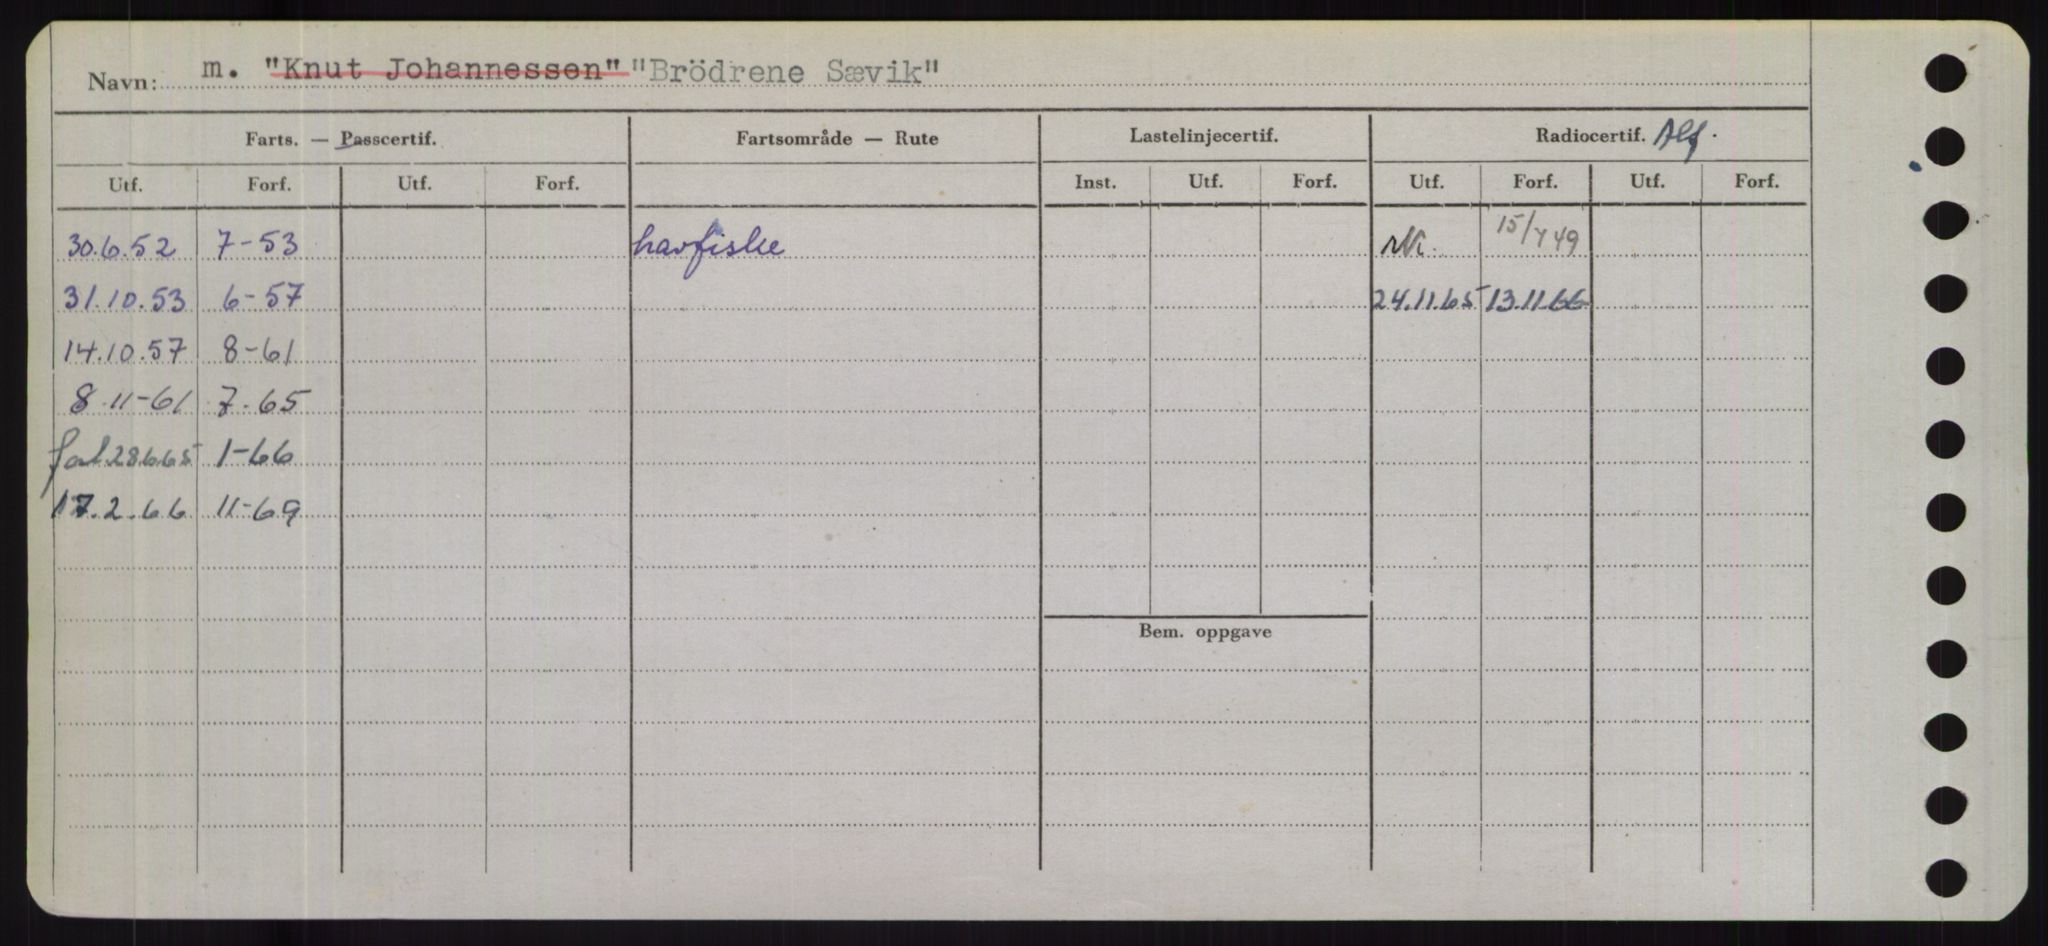 Navn: m. "Knut Johannessen" "Brödrene Sævik"
Farts. — Passcertif. Fartsområde — Rute Lastelinjecertif. Radiocertif. Alf.
Utf. Forf. Utf. Forf. Inst. Utf. Forf. Utf. Forf. Utf. Forf.
30.6.52 7-53 havfiske 15/7 49
31.10.53 6-57 24.11.65 13.11.66
14.10.57 8-61
8.11-61 7.65
28.6.65 1-66
17.2.66 11-69
Bem. oppgave